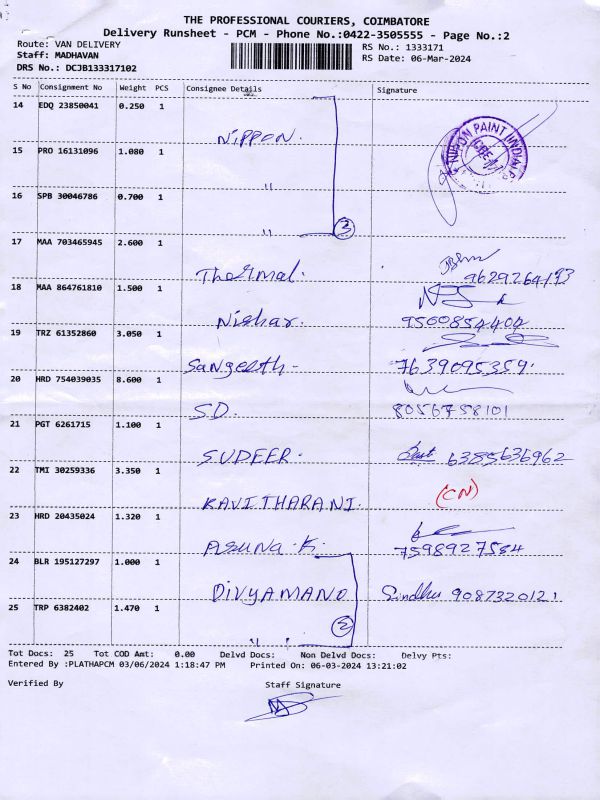 THE PROFESSIONAL COURIERS, COIMBATORE
Delivery Runsheet - PCM - Phone No.:0422-3505555 - Page No.:2
Route: VAN DELIVERY
RS No.: 1333171
Staff: MADHAVAN
RS Date: 06-Mar-2024
DRS No.: DCJB133317102
S No Consignment No Weight PCS Consignee Details Signature
14 EDQ 23850041 0.250 1
NIPPON.
NIPPON PAINT (INDIA)
15 PRO 16131096 1.080 1
"
16 SPB 30046786 0.700 1
" 3
17 MAA 703465945 2.600 1
Thermal. 9629264193
18 MAA 864761810 1.500 1
Nishar. 9500854404
19 TRZ 61352860 3.050 1
Sangeeth - 7639095359.
20 HRD 754039035 8.600 1
S.D. 8056758101
21 PGT 6261715 1.100 1
SUDEER. 6385636962
22 TMI 30259336 3.350 1
KAVITHARANI. (CN)
23 HRD 20435024 1.320 1
Aruna.K. 7598927584
24 BLR 195127297 1.000 1
DIVYAMANO Sindhu 9087320121
25 TRP 6382402 1.470 1
" 2
Tot Docs: 25 Tot COD Amt: 0.00 Delvd Docs: Non Delvd Docs: Delvy Pts:
Entered By :PLATHAPCM 03/06/2024 1:18:47 PM Printed On: 06-03-2024 13:21:02
Verified By Staff Signature